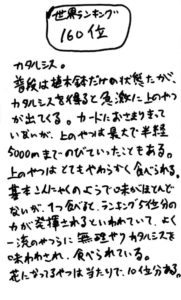 世界ランキング
160位
カタルシス。
普段は植木鉢だけの状態だが、
カタルシスを得ると急激に上のやつ
が出てくる。カードにおさまりきって
いないが、上のやつは最大で半径
5000mまでのびていったこともある。
上のやつはとてもやわらかく食べられる。
基本こんにゃくのようで味がほとんどで
ないが、1つ食べると、ランキング5位分の
力が発揮されるといわれていて、よく
一流のやつらに無理やりカタルシスを
味わわされ、食べられている。
花になってるやつは当たりで、10位分ある。